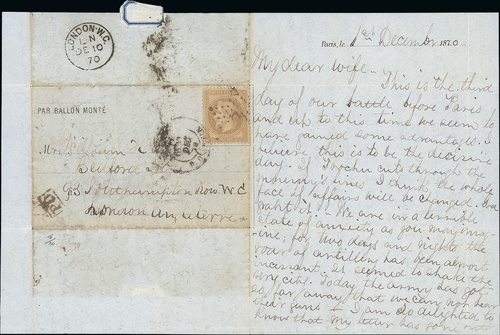 LONDON·W.C
L N
DE 10
70
PAR BALLON MONTÉ
Mrs
Bedford
Southampton Row W.C
London Angleterre
PD
Paris, le 1st December 1870
My dear wife – This is the third
day of our battle before Paris
and up to this time we seem to
have gained some advantages. I
believe this is to be the decisive
day. If Trochu cuts through the
enemy's lines I think the whole
face of affairs will be changed.
We are in a terrible
state of anxiety as you may imag
-ine, for two days and nights the
roar of artillery has been almost
incessant, it seemed to shake the
very city. Today the army has got
so far away that we can not hear
their guns – I am so delighted to
know that my letter has